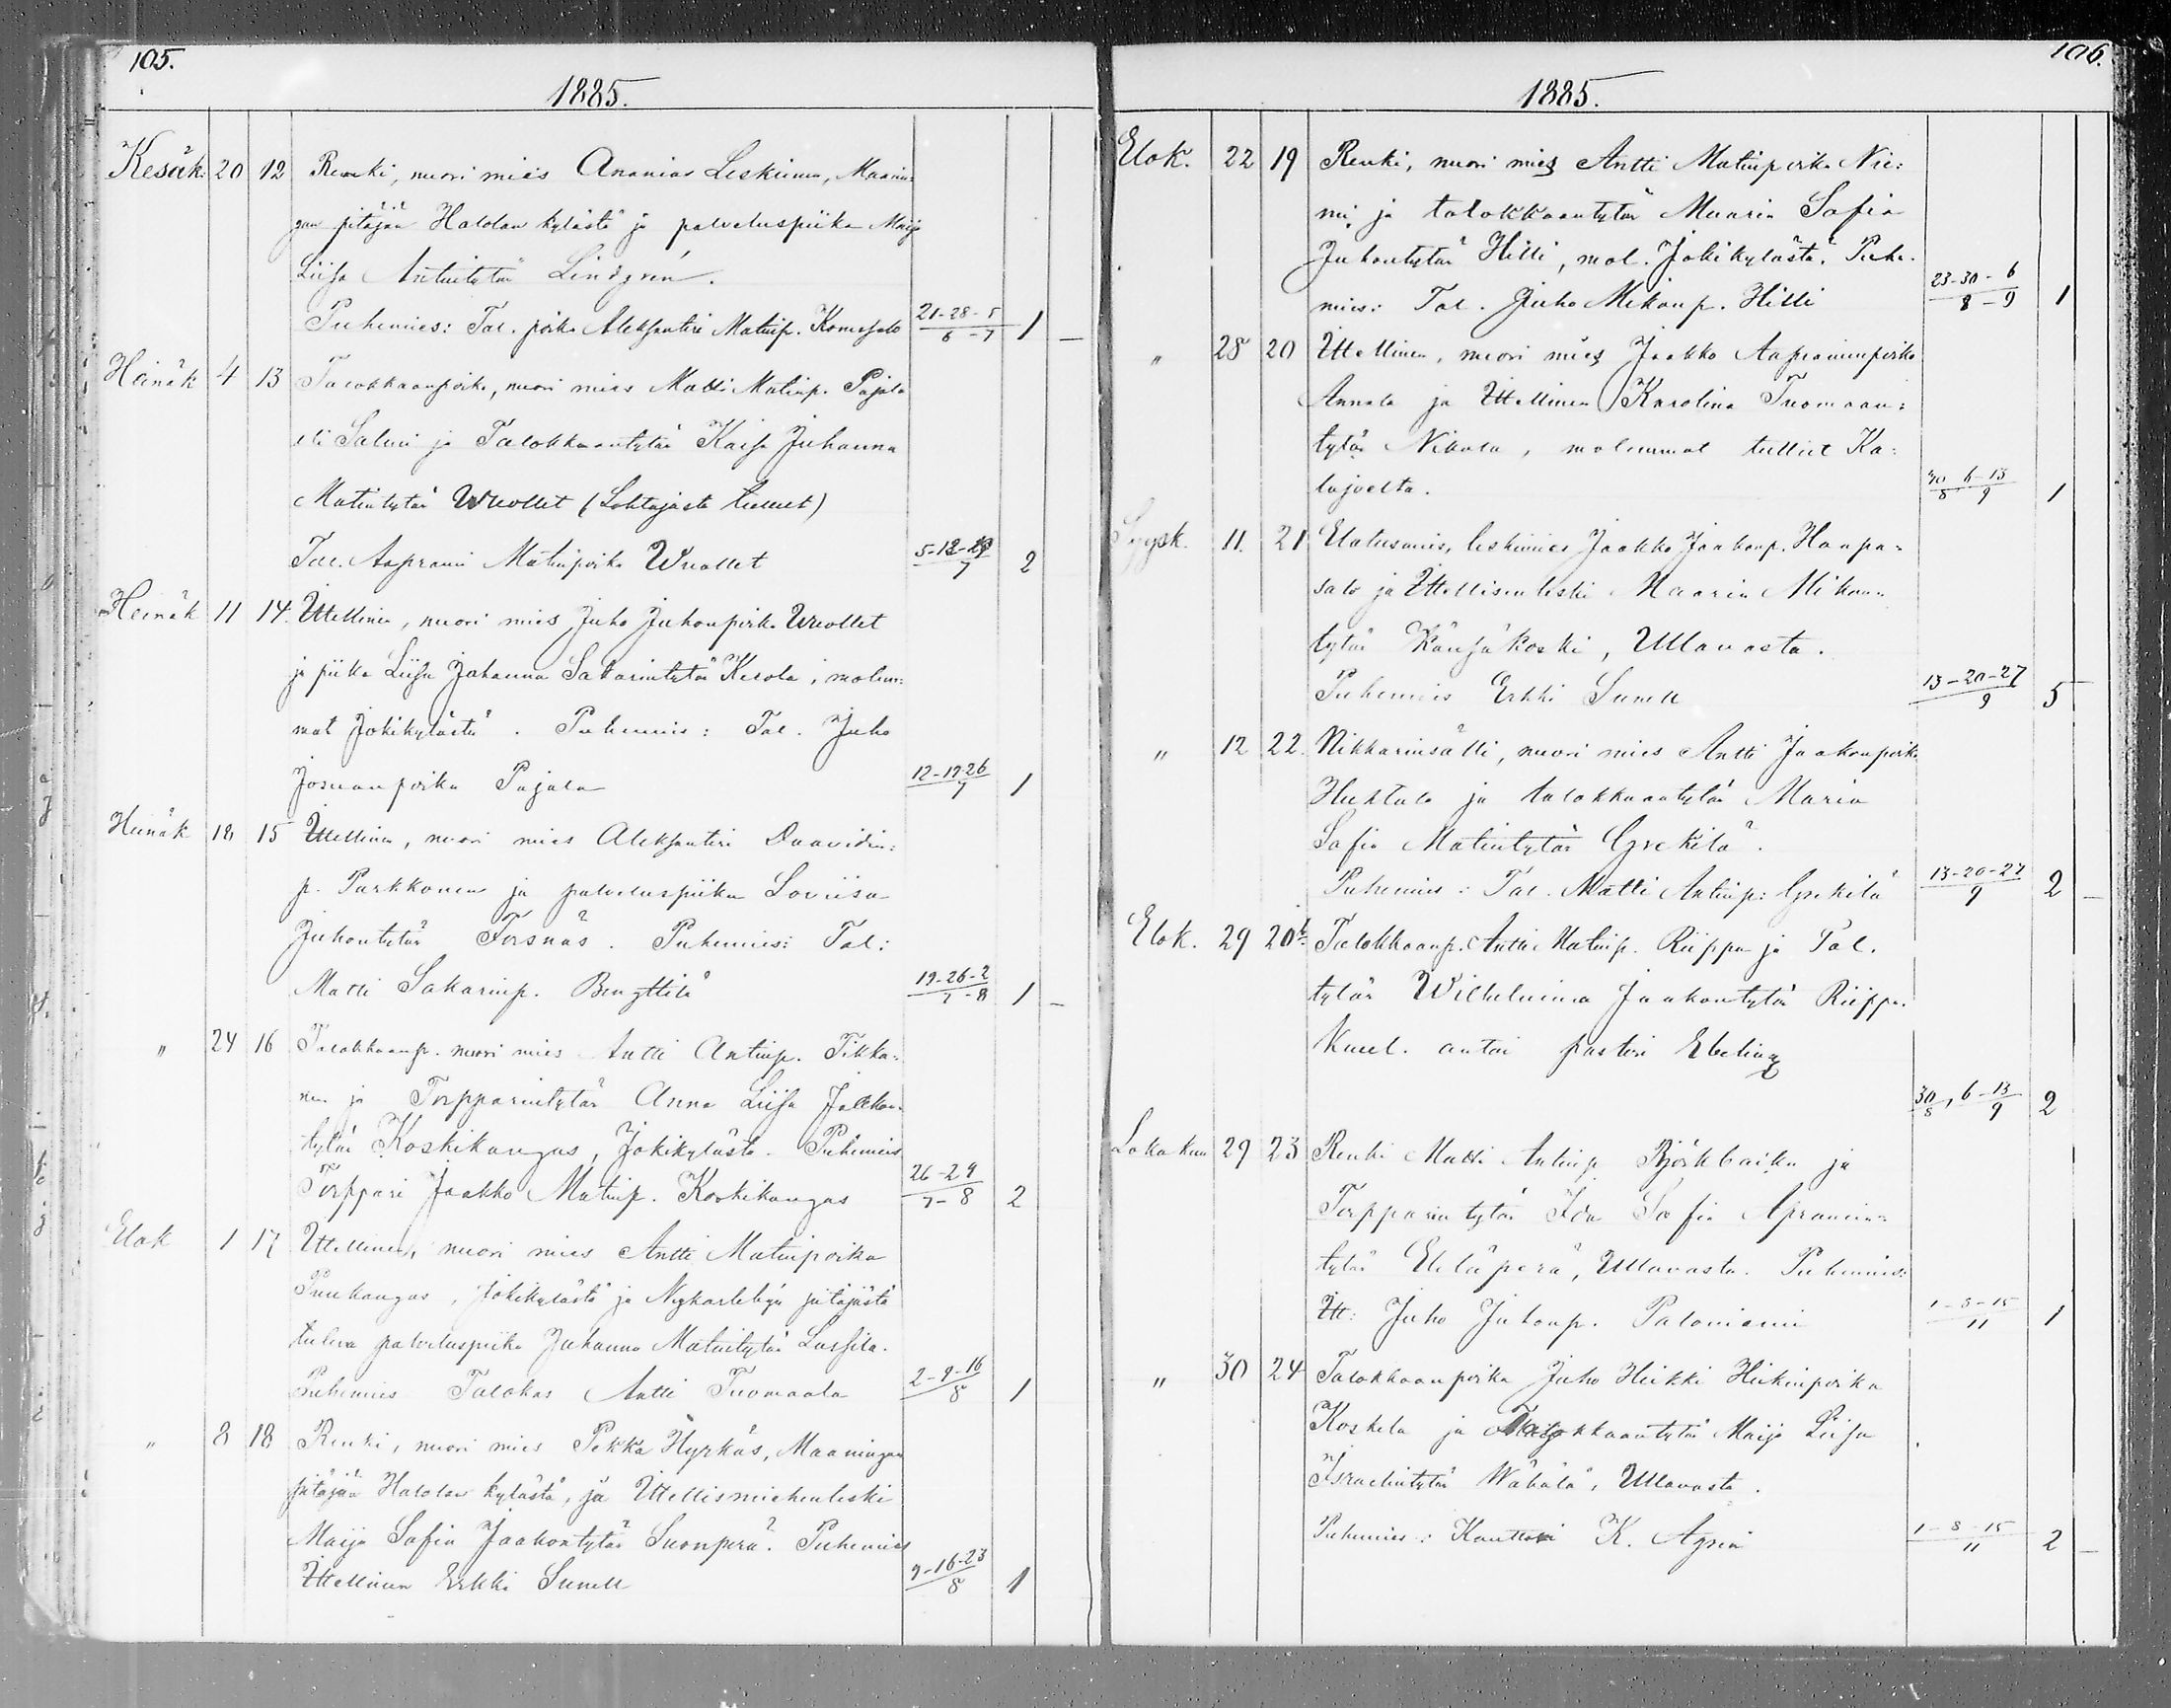 105.
1885.
Kesäk. 20 12 Renki, nuori mies Ananias Leskinen, Maanin-
gan pitäjän Halolan kylästä ja palveluspiika Maija
Liisa Antintytär Lindgrén.
Puhemies: Tal. poika Aleksanteri Matinp. 21-28-5/6-7 1 —
Heinäk 4 13 Talokkaanpoika, nuori mies Matti Matinp. Pajala
eli Salmi ja Talokkaantytär Kaisa Johanna
Matintytär Wuollet (Lohtajasta tulleet)
Tal. Aaprami Matinpoika Wuollet 5-12-19/7 2
Heinäk 11 14. Ittellinen, nuori mies Juho Juhonpoika Wuollet
ja piika Liisa Johanna Sakarintytär Kerola, molem-
mat Jokikylästä. Puhemies: Tal. Juho
Josuanpoika Pajala 12-19-26/7 1
Heinäk 18 15 Ittellinen, nuori mies Aleksanteri Daavidin-
p. Parkkonen ja palveluspiika Loviisa
Juhontytär Forsnäs. Puhemies: Tal:
Matti Sakarinp. Bengttilä 19-26-2/7-8 1 —
" 24 16 Talokkaanp. nuori mies Antti Antinp. Tikka-
nen ja Torpparintytär Anna Liisa Jaakon-
tytär Koskikangas, Jokikylästä. Puhemies
Torppari Jaakko Matinp. Koskikangas 26-29/7-8 2
Elok 1 17 Ittellinen, nuori mies Antti Matinpoika
Puukangas, Jokikylästä ja Nykarlebyn pitäjästä
tuleva palveluspiika Johanna Matintytär Lassila.
Puhemies Talokas Antti Tuomaala 2-9-16/8 1
" 8 18 Renki, nuori mies Pekka Hyrkäs, Maaningan
pitäjän Halolan kylästä, ja Ittellismiehenleski
Maija Sofia Jaakontytär Suonperä. Puhemies
Ittellinen Erkki Sunell 9-16-23/8 1
106.
1885.
Elok. 22 19 Renki, nuori mies Antti Matinpoika Nie-
mi ja talokkaantytär Maaria Sofia
Juhontytär Hilli, mol. Jokikylästä. Puhe-
mies: Tal. Juho Mikonp. Hilli 23-30-6/8-9 1
" 28 20 Ittellinen, nuori mies Jaakko Aapraminpoika
Annala ja Ittellinen Karolina Tuomaan-
tytär Nikula, molemmat tulleet Ka-
lajoelta. 30/8, 6-13/9 1
Syysk. 11. 21 Elatusmies, leskimies Jaakko Jaakonp. Haapa-
salo ja Ittellisenleski Maaria Mikon-
tytär Känsäkoski, Ullavasta.
Puhemies Erkki Sunell 13-20-27/9 5
" 12 22. Nikkarinsälli, nuori mies Antti Jaakonpoika
Huhtala ja talokkaantytär Maria
Sofia Matintytär Grekilä.
Puhemies: Tal. Matti Antinp: Grekilä 13-20-27/9 2 —
Elok. 29 20b Talokkaanp. Antti Matinp. Riippa ja Tal.
tytär Wilhelmina Jaakontytär Riippa.
Kuul. antoi pastori Ebeling
30/8, 6-13/9 2
Lokakuu 29 23 Renki Matti Antinp Björkbacka ja
Torpparin tytär Ida Sofia Apramin-
tytär Eteläperä, Ullavasta. Puhemies:
Itt: Juho Juhonp. Paloniemi 1-8-15/11 1
" 30 24 Talokkaanpoika Juho Heikki Heikinpoika
Koskela ja Talokkaantytär Maija Liisa
Israelintytär Wähälä, Ullavasta.
Puhemies: Kanttori K. Agrin 1-8-15/11 2 —